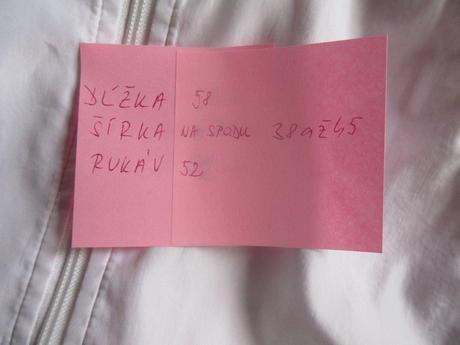 DĹŽKA 58
ŠÍRKA NA SPODU 38 až 45
RUKÁV 52